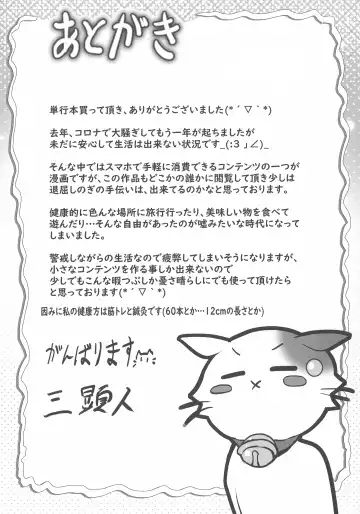 あとがき
単行本買って頂き、ありがとうございました(*´▽｀*)
去年、コロナで大騒ぎしてもう一年が起ちましたが
未だに安心して生活は出来ない状況です_(:3 」∠)_
そんな中ではスマホで手軽に消費できるコンテンツの一つが
漫画ですが、この作品もどこかの誰かに閲覧して頂き少しは
退屈しのぎの手伝いは、出来てるのかなと思っております。
健康的に色んな場所に旅行行ったり、美味しい物を食べて
遊んだり…そんな自由があったのが嘘みたいな時代になって
しまいました。
警戒しながらの生活なので疲弊してしまいそうになりますが、
小さなコンテンツを作る事しか出来ないので
少しでもこんな暇つぶしでも憂さ晴らしにでも使って頂けたら
と思っております(*´▽｀*)
因みに私の健康方は筋トレと鍼灸です(60本とか…12cmの長さとか)
がんばります
三顕人